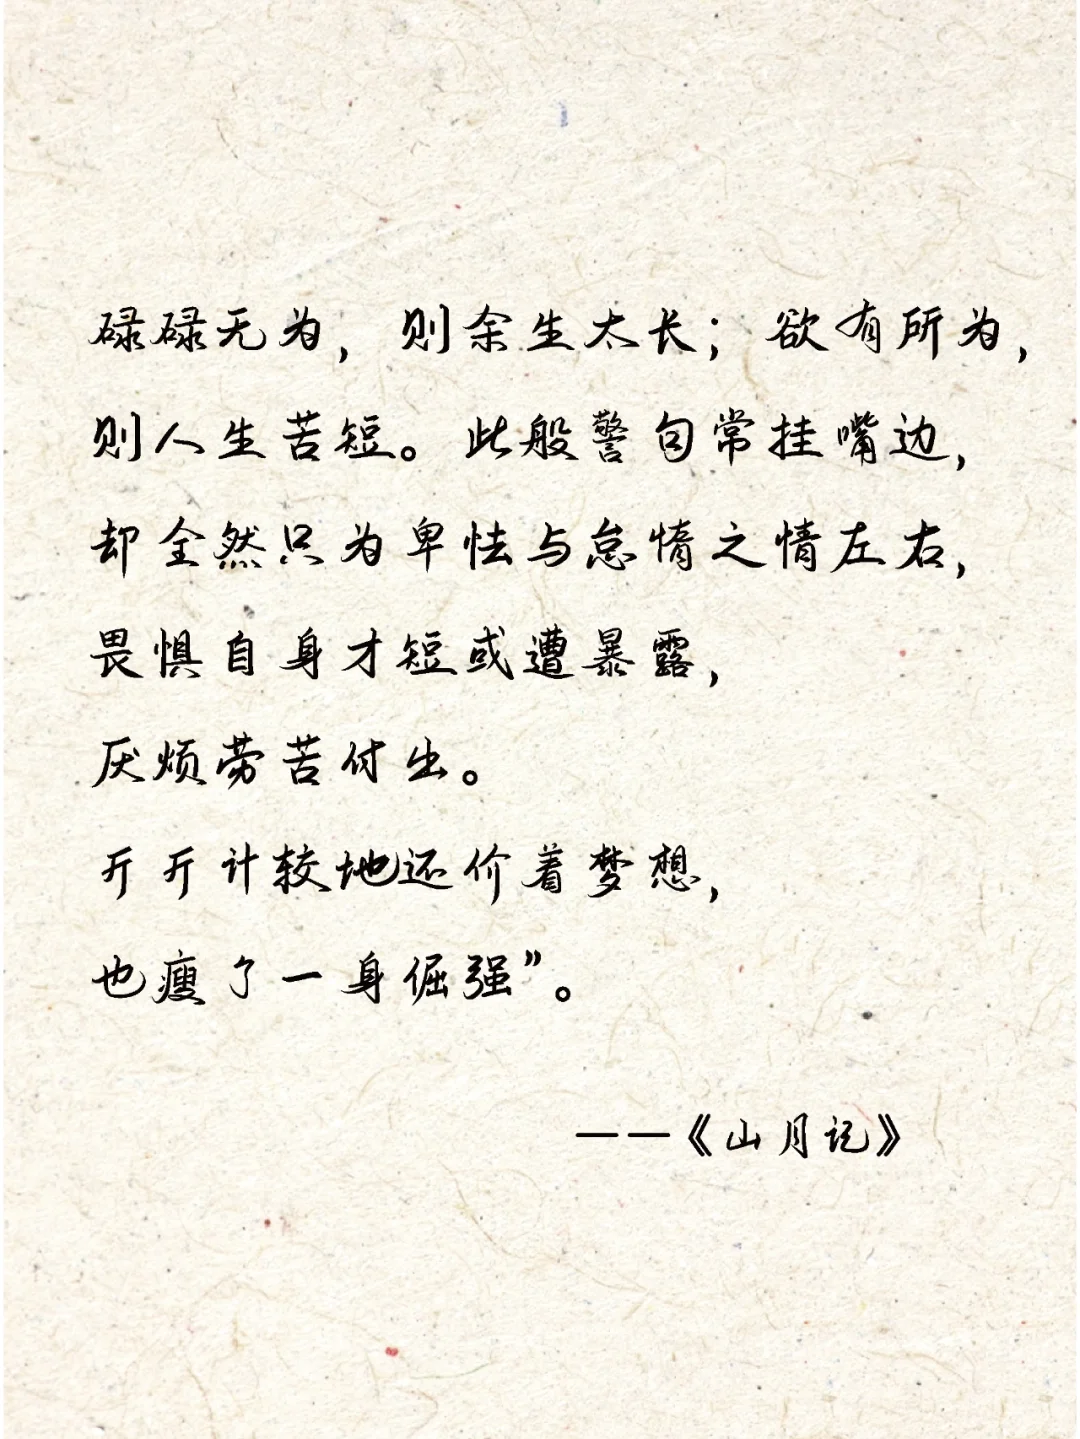 碌碌无为，则余生太长；欲有所为，
则人生苦短。此般警句常挂嘴边，
却全然只为卑怯与怠惰之情左右，
畏惧自身才短或遭暴露，
厌烦劳苦付出。
斤斤计较地还价着梦想，
也瘦了一身倔强”。
——《山月记》